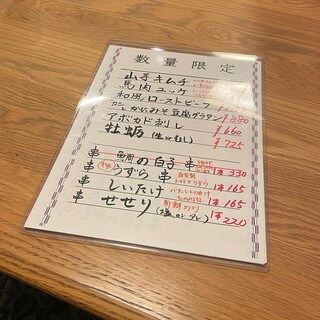 数量限定
山芋キムチ
馬肉ユッケ
和風ローストビーフ
カニとかにみそ豆腐グラタン ¥880
アボカド刺し ¥660
牡蛎(生orむし) ¥725
串 鯛の白子 串 1本330
串 うずら 串 1本165
串 しいたけ 1本165
串 せせり (塩orタレ) 1本220